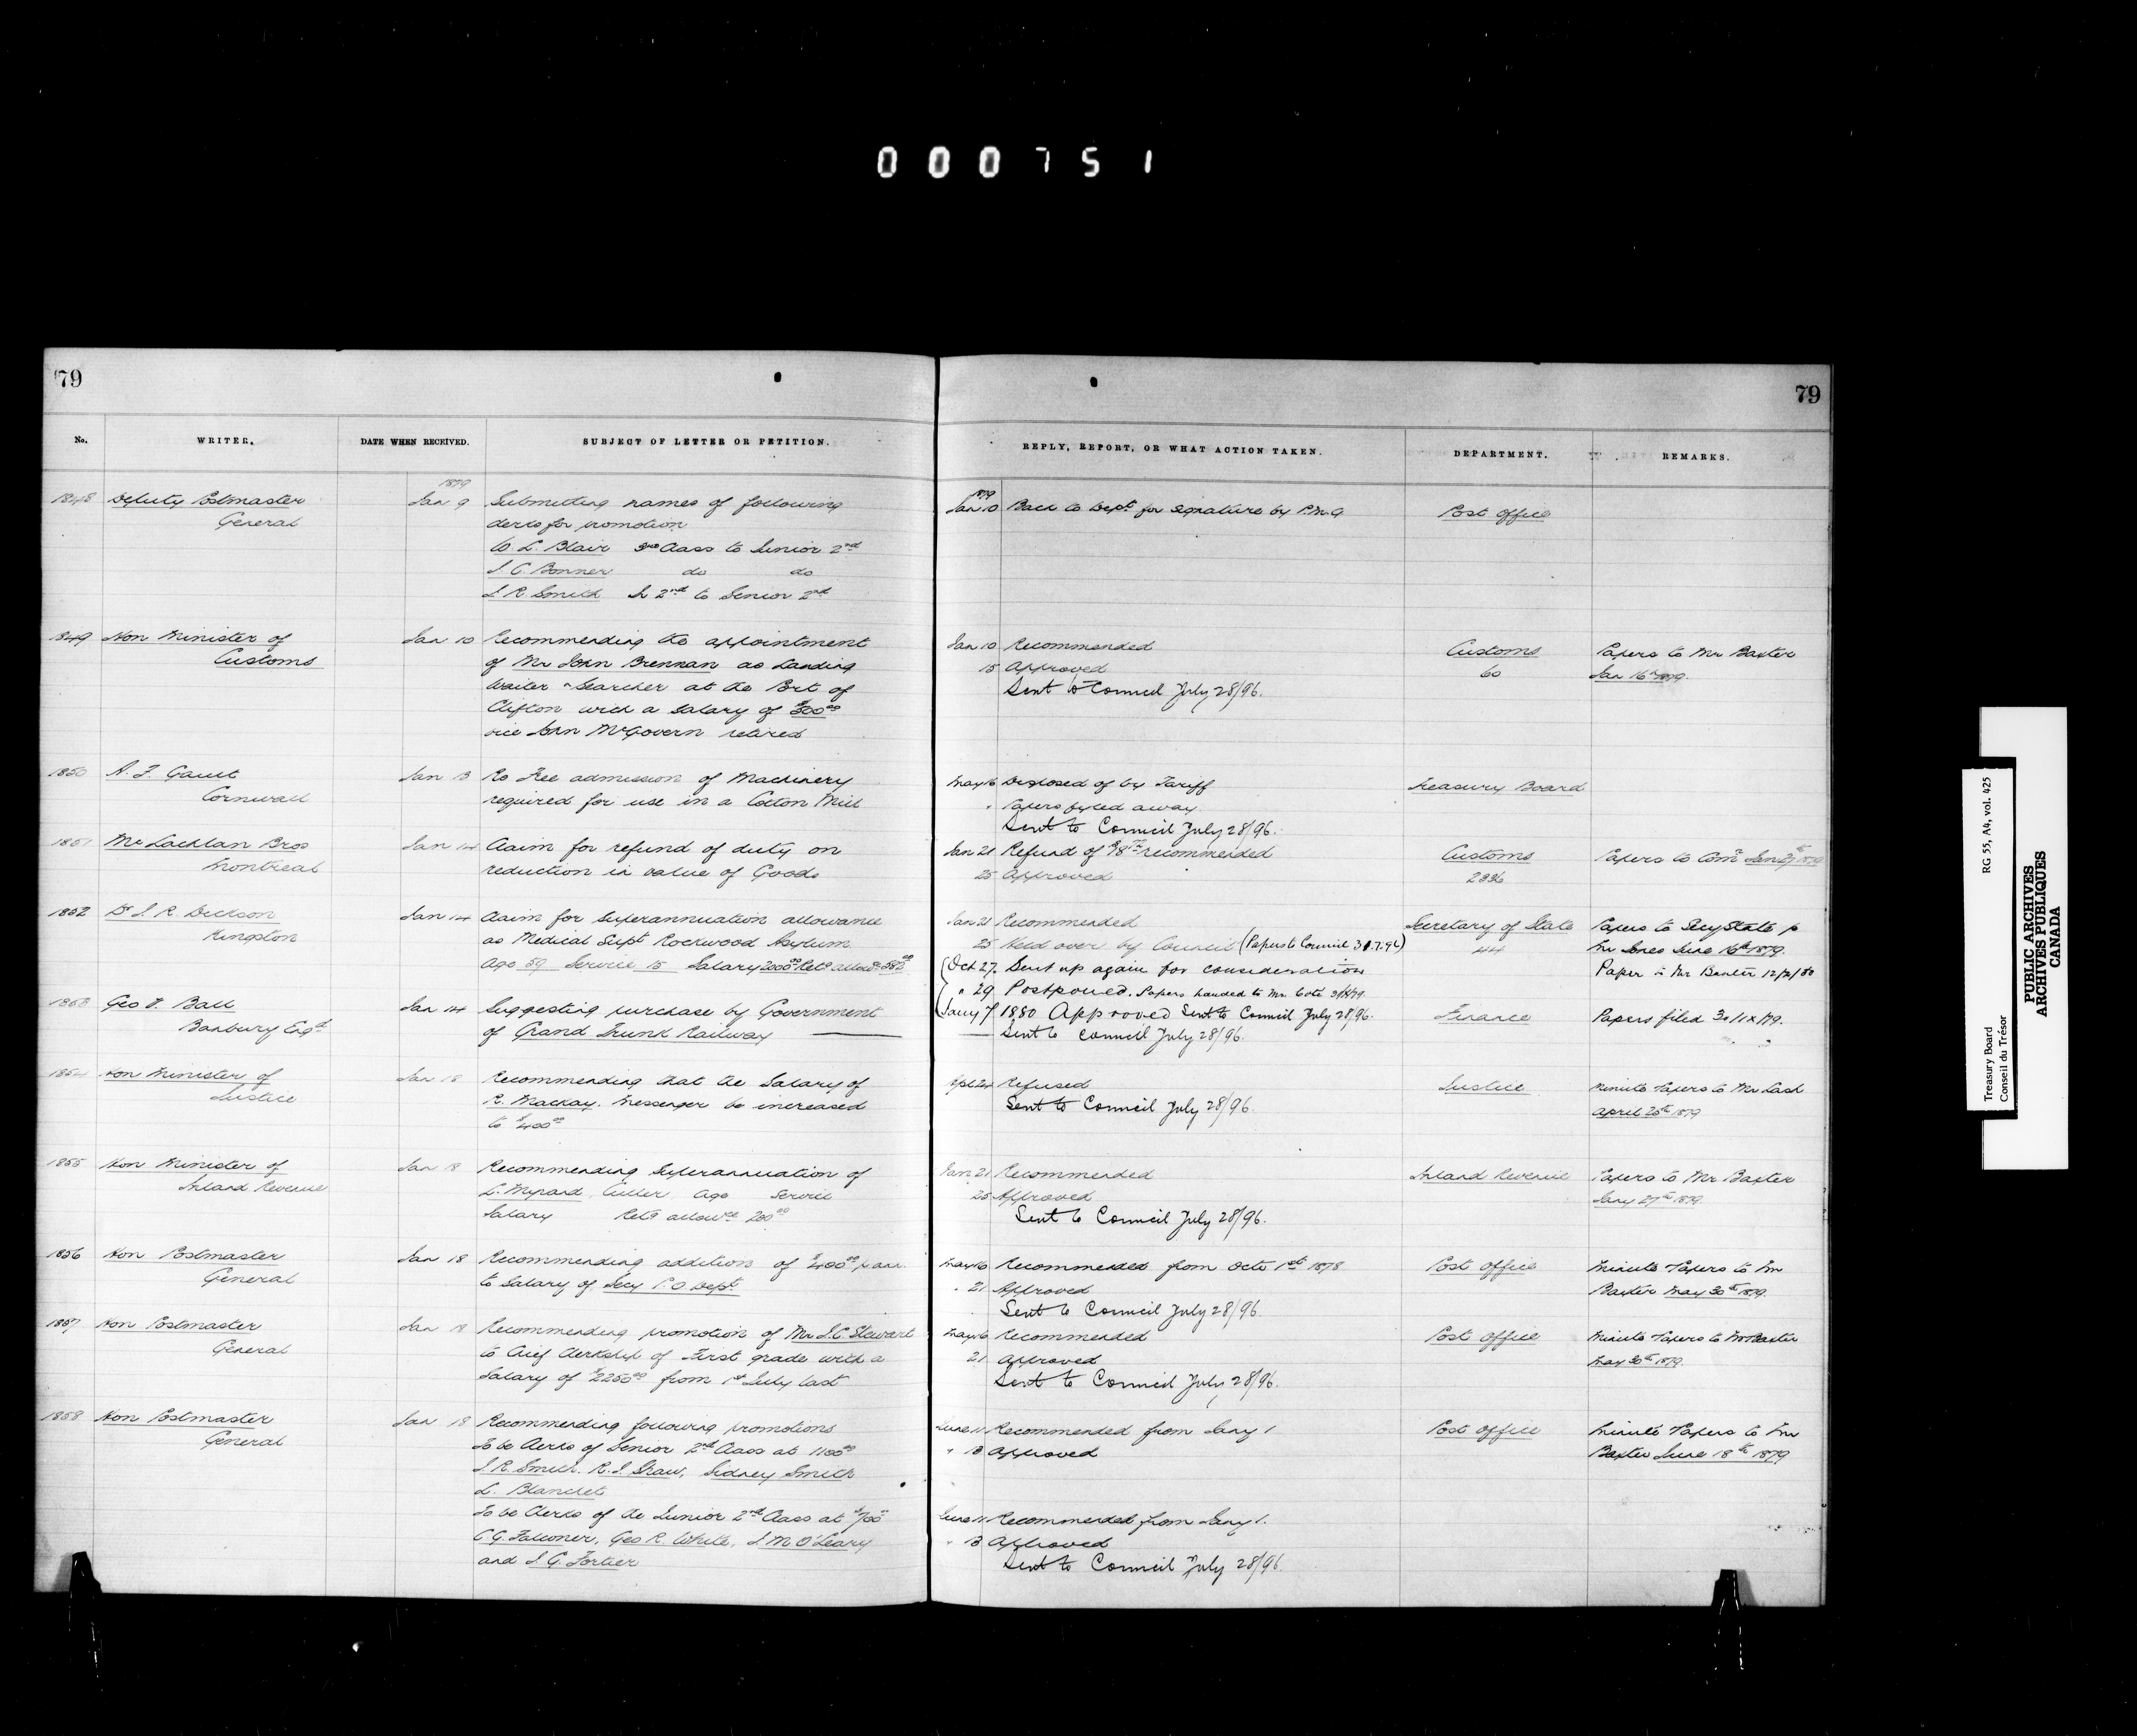 000751
79
79
No.
WRITER.
DATE WHEN RECEIVED.
SUBJECT OF LETTER OR PETITION.
REPLY, REPORT, OR WHAT ACTION TAKEN.
DEPARTMENT.
REMARKS.
1848 Deputy Postmaster
General
1879
Jan 9
Submitting names of following
clerks for promotion
W. L. Blair 3rd Class to Senior 2nd
J. C. Bonner do do
J. R. Smith Jr 2nd to Senior 2nd
1879
Jan 10 Back to Dept for signature by P.M.G
Post Office
1849 Hon Minister of
Customs
Jan 10
Recommending the appointment
of Mr John Brennan as Landing
Waiter & Searcher at the Port of
Clifton with a salary of $300.00
vice John McGovern retired
Jan 10 Recommended
15 Approved
Sent to Council July 28/96.
Customs
60
Papers to Mr Baxter
Jan 16th 1879.
1850 A. F. Gault
Cornwall
Jan 13
Ro Free admission of Machinery
required for use in a Cotton Mill
May 16 Disposed of by Tariff
" Papers fyled away.
Sent to Council July 28/96.
Treasury Board
1851 McLachlan Bros
Montreal
Jan 14
Claim for refund of duty on
reduction in value of Goods
Jan 21 Refund of recommended
25 Approved
Customs
2336
Papers to Comr Jan 27th 1879
1852 Dr J. R. Dickson
Kingston
Jan 14
Claim for superannuation allowance
as Medical Supt Rockwood Asylum
Age 59 Service 15 Salary 2000.00 Retg allowce
Jan 21 Recommended
25 Held over by Council (Papers to Council 31.7.96)
Oct 27. Sent up again for consideration
" 29 Postponed. Papers handed to Mr. Coté
Jany 7 1880 Approved Sent to Council July 28/96.
Secretary of State
44
Papers to Secy State p
Mr Jones June 16th 1879.
Paper to Mr Baxter 12/2/80
1853 Geo V. Ball
Banbury Engd
Jan 14
Suggesting purchase by Government
of Grand Trunk Railway
Sent to Council July 28/96.
Finance
Papers filed 30/1x/79.
1854 Hon Minister of
Justice
Jan 18
Recommending that the Salary of
R. Mackay. Messenger be increased
to $400.00
Apl 24 Refused
Sent to Council July 28/96.
Justice
Minute Papers to Mr Lash
April 26th 1879
1855 Hon Minister of
Inland Revenue
Jan 18
Recommending Superannuation of
L. Mynard, Culler Age Service
Salary Retg allowce 200.00
Jan 21 Recommended
25 Approved
Sent to Council July 28/96.
Inland Revenue
Papers to Mr Baxter
Jany 27th 1879
1856 Hon Postmaster
General
Jan 18
Recommending addition of $400.00 p ann
to salary of Secy P.O Dept
May 16 Recommended from Octr 1st 1878
" 21 Approved
Sent to Council July 28/96.
Post Office
Minute Papers to Mr
Baxter May 30th 1879.
1857 Hon Postmaster
General
Jan 18
Recommending promotion of Mr J. C. Stewart
to Chief Clerkship of First grade with a
salary of $2250.00 from 1st July last
May 16 Recommended
21 Approved
Sent to Council July 28/96.
Post Office
Minute Papers to Mr Baxter
May 30th 1879.
1858 Hon Postmaster
General
Jan 18
Recommending following promotions
To be Clerks of Senior 2nd Class at 1100.00
J. R. Smith. R. J. Shaw, Sidney Smith
L. Blanchet
To be Clerks of the Junior 2nd Class at $700.00
C. G. Falconer, Geo R. White, J. M O'Leary
and J. G. Fortier
June 11 Recommended from Jany 1
" 13 Approved
June 11 Recommended from Jany 1.
" 13 Approved
Sent to Council July 28/96.
Post Office
Minute Papers to Mr
Baxter June 18th 1879
Treasury Board
Conseil du Trésor
RG 55, A4, vol. 425
PUBLIC ARCHIVES
ARCHIVES PUBLIQUES
CANADA